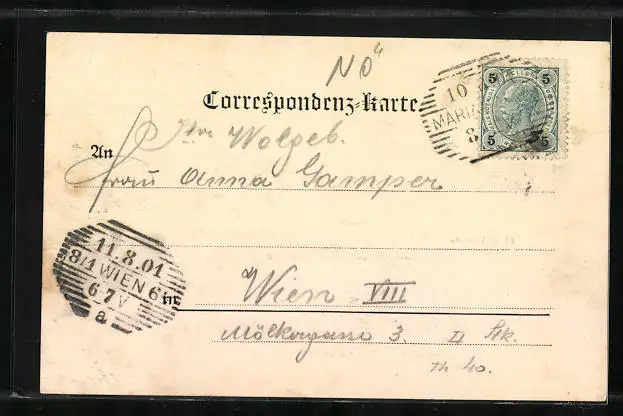 NÖ
Correspondenz-Karte
5 5
5 5
10
MARIA
8
An Ihr Wolgeb.
Frau Anna Gamper
11.8.01
8/1 WIEN 6
6-7V
a
in Wien VIII
Mölkergasse 3. II Stk.
Th 40.